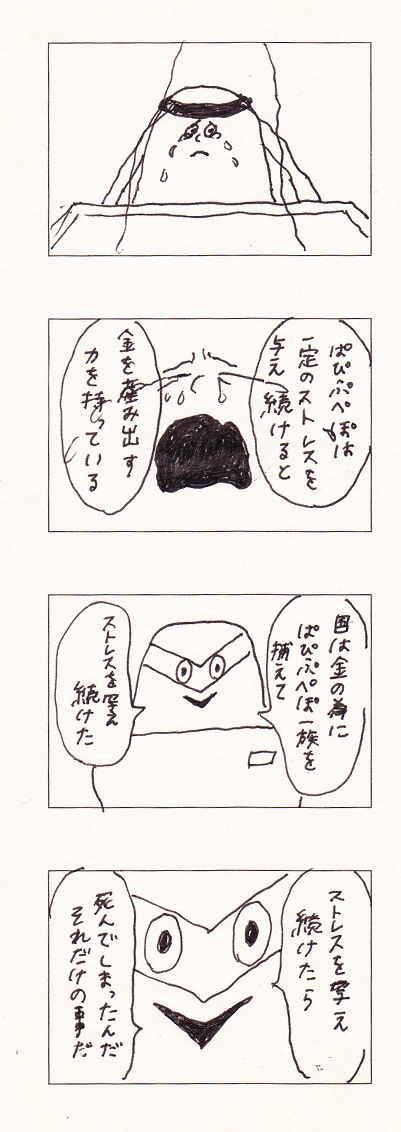 ぱぴぷぺぽは
一定のストレスを
与え続けると
金を産み出す
力を持っている
国は金の為に
ぱぴぷぺぽ一族を
捕えて
ストレスを与え
続けた
ストレスを与え
続けたら
死んでしまったんだ
それだけの事だ